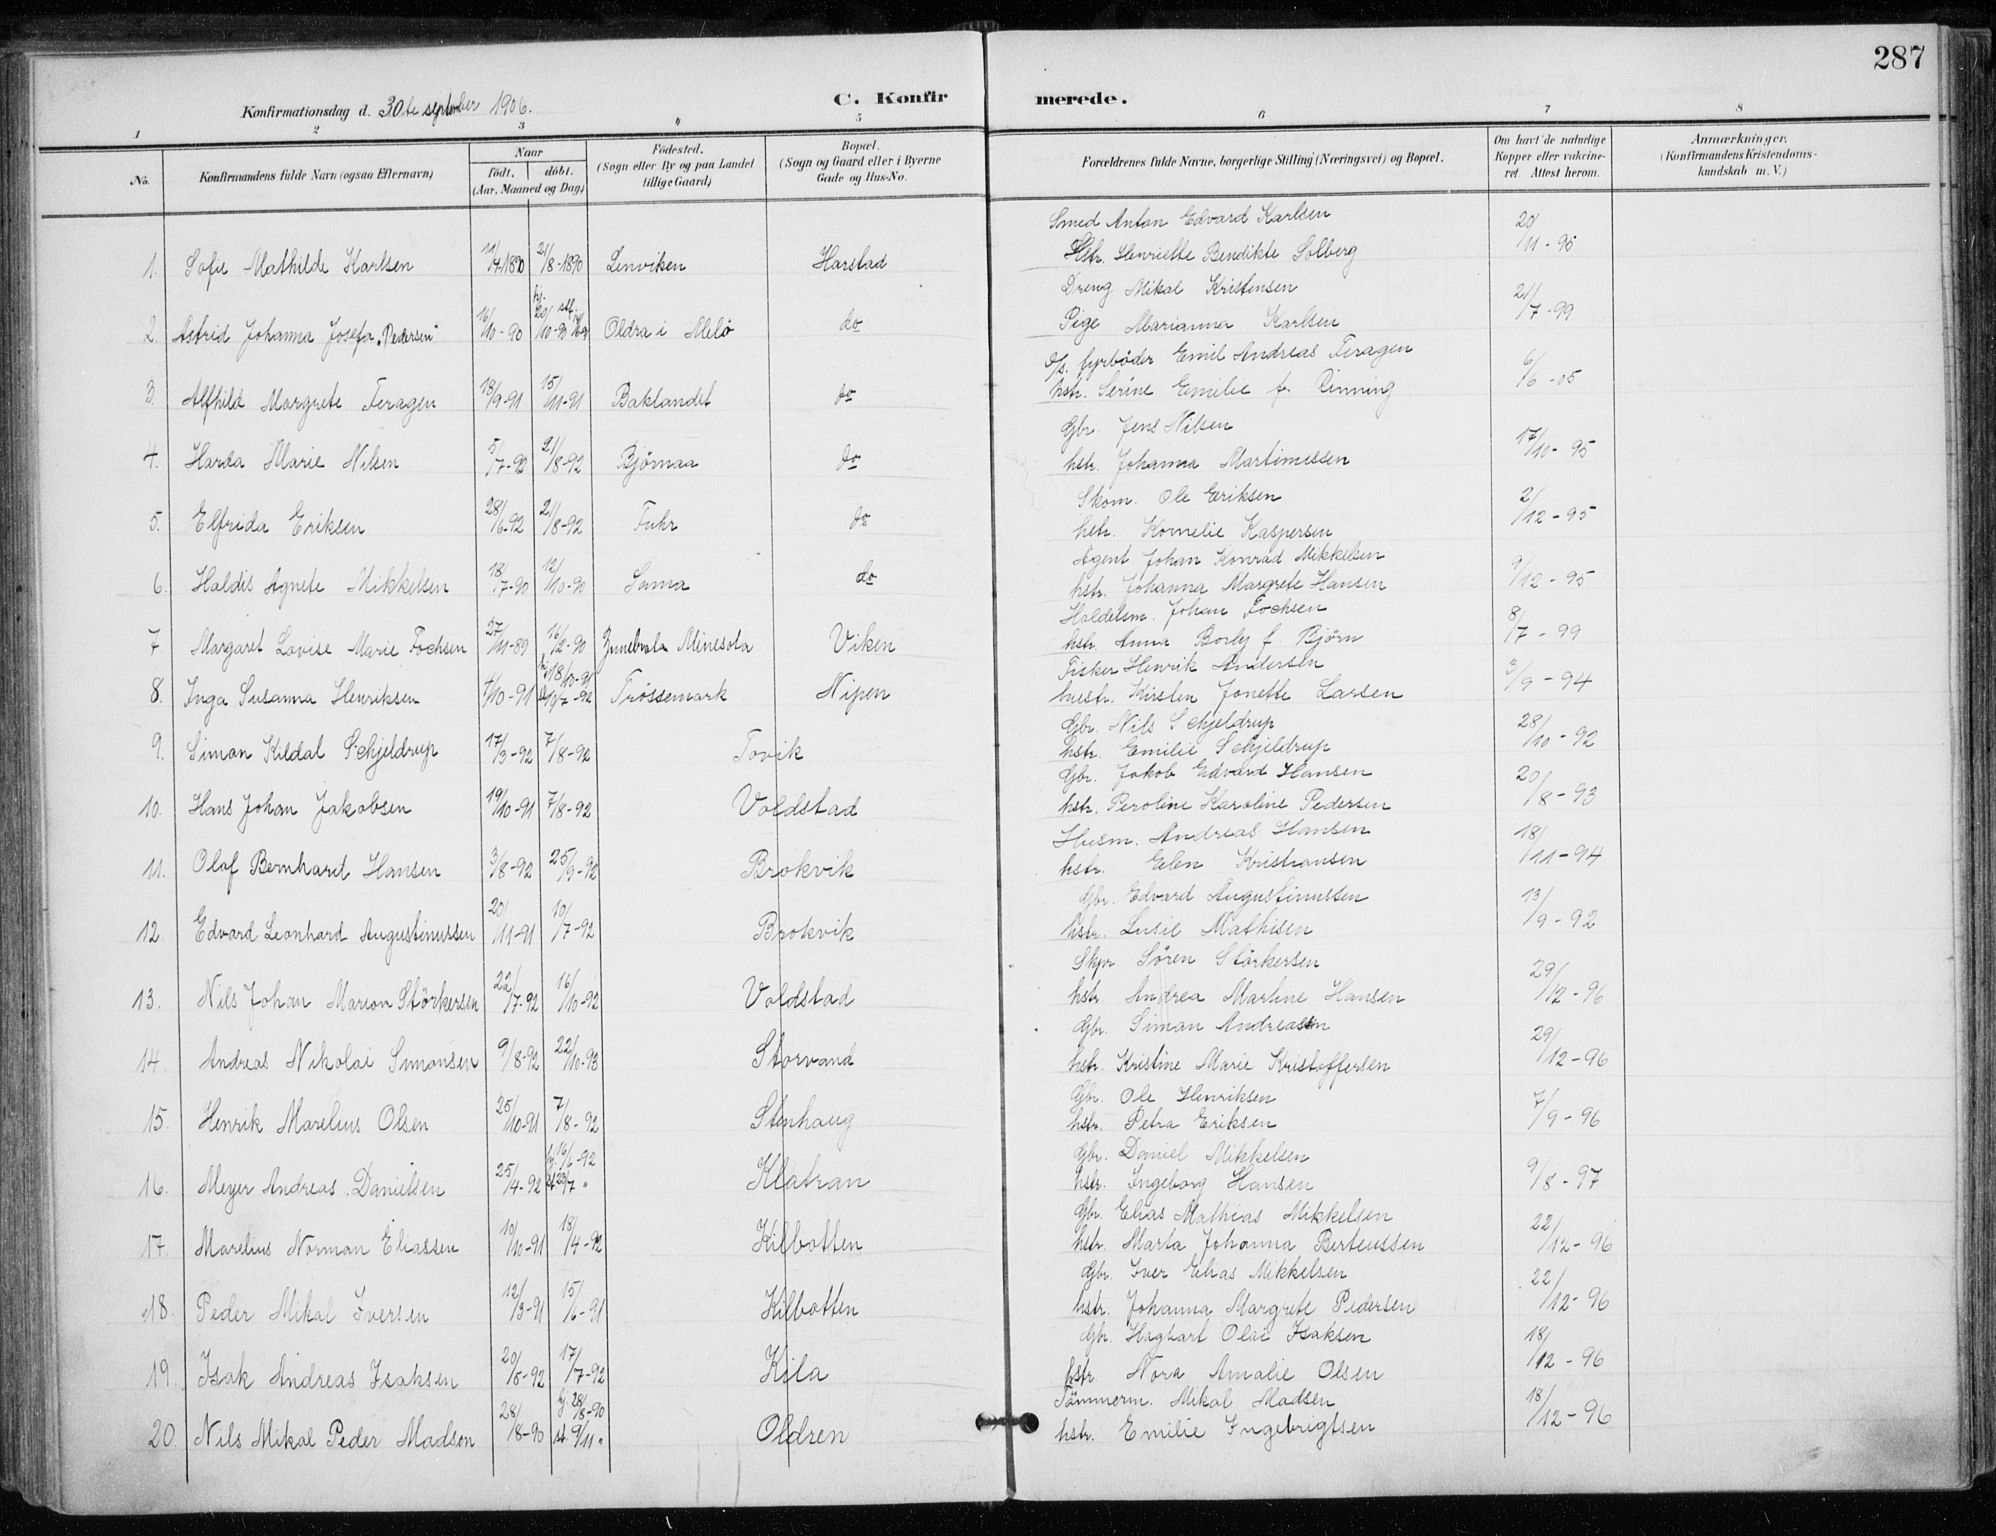 287
Konfirmationsdag d. 30te september 1906.
C. Konfirmerede.
1 2 3 4 5 6 7 8
No.
Konfirmandens fulde Navn (ogsaa Efternavn)
Naar
födt. döbt.
(Aar, Maaned og Dag)
Födested.
(Sogn eller By og paa Landet
tillige Gaard)
Bopæl.
(Sogn og Gaard eller i Byerne
Gade og Hus-No.
Forældrenes fulde Navne, borgerlige Stilling (Næringsvei) og Bopæl.
Om havt de naturlige
Kopper eller vakcine-
ret. Attest herom.
Anmærkninger.
(Konfirmandens Kristendoms-
kundskab m. V.)
Smed Anton Edvard Karlsen 20/11-95
1. Sofie Mathilde Karlsen 21/8-1890 Lenviken Harstad Hstr. Henriette Bendikte Solberg
Dreng Mikal Kristensen 21/7-99
2. Astrid Johanna Josefa "Pedersen" 16/10-90 Oldra i Melö do Pige Marianna Karlsen
fyrböder Emil Andreas Feragen 6/6-05
3. Alfhild Margrete Feragen 18/9-91 15/11-91 Baklandet do hstr. Serine Emilie f. Rinning
Gbr. Jens Nilsen 17/10-95
4. Harda Marie Nilsen 5/7-92 21/8-92 Björnaa do hstr. Johanna Martinussen
Skom. Ole Eriksen 2/12-95
5. Elfrida Eriksen 28/6-92 21/8-92 Fuhr do hstr. Kornelie Kaspersen
Agent Johan Konrad Mikkelsen 9/12-95
6. Haldis Agnete Mikkelsen 18/7-90 12/10-90 Sama do hstr. Johanna Margrete Hansen
Haldelsm. Johan Fochsen 8/7-99
7 Margaret Lovise Marie Fochsen 27/11-89 16/2-90 Minesota Viken hstr. Anna Borly f. Björn
Fisker Henrik Andersen 3/9-94
8. Inga Susanna Henriksen 4/10-91 hj. 18/10-91 Trössemark Nipen hustr. Kirsten Jonette Larsen
Gbr. Nils Schjeldrup 28/10-92
9. Simon Kildal Schjeldrup 17/3-92 7/8-92 Tovik hstr. Emilie Schjeldrup
Gbr. Jakob Edvard Hansen 20/8-93
10. Hans Johan Jakobsen 19/10-91 7/8-92 Voldstad hstr. Peroline Karoline Pedersen
Husm. Andreas Hansen 18/11-94
11. Olaf Bernhard Hansen 3/8-92 25/9-92 Brokvik hstr. Elen Kristiansen
Gbr. Edvard Augustinussen 13/9-92
12. Edvard Leonhard Augustinussen 20/11-91 10/7-92 Brokvik hstr. Lusie Mathisen
Skpr Sören Störkersen 29/12-96
13. Nils Johan Marion Störkersen 22/7-92 16/10-92 Voldstad hstr Andrea Martine Hansen
Gbr. Simon Andreassen 29/12-96
14. Andreas Nikolai Simonsen 9/8-92 22/10-93 Storvand hstr. Kristine Marie Kristoffersen
Gbr. Ole Henriksen 7/9-96
15. Henrik Marelius Olsen 25/10-91 7/8-92 Stenhaug hstr. Petra Eriksen
Gbr. Daniel Mikkelsen 9/8-97
16. Meyer Andreas Danielsen 25/4-92 hj. 16/6-92 Klatran hstr. Ingeborg Hansen
Gbr. Elias Mathias Mikkelsen 22/12-96
17. Marelius Norman Eliassen 10/10-91 18/4-92 Kilbotten hstr. Marta Johanna Berteussen
Gbr. Iver Elias Mikkelsen 22/12-96
18. Peder Mikal Iversen 12/3-91 15/6-91 Kilbotten hstr. Johanna Margrete Pedersen
Gbr. Hagbart Olai Isaksen 18/12-96
19. Isak Andreas Isaksen 20/5-92 17/7-92 Kila hstr. Nora Amalie Olsen
Tömmerm. Mikal Madsen 18/12-96
20 Nils Mikal Peder Madsen 28/8-90 hj. 28/8-90 st. 9/11 " Oldren hstr. Emilie Ingebrigtsen